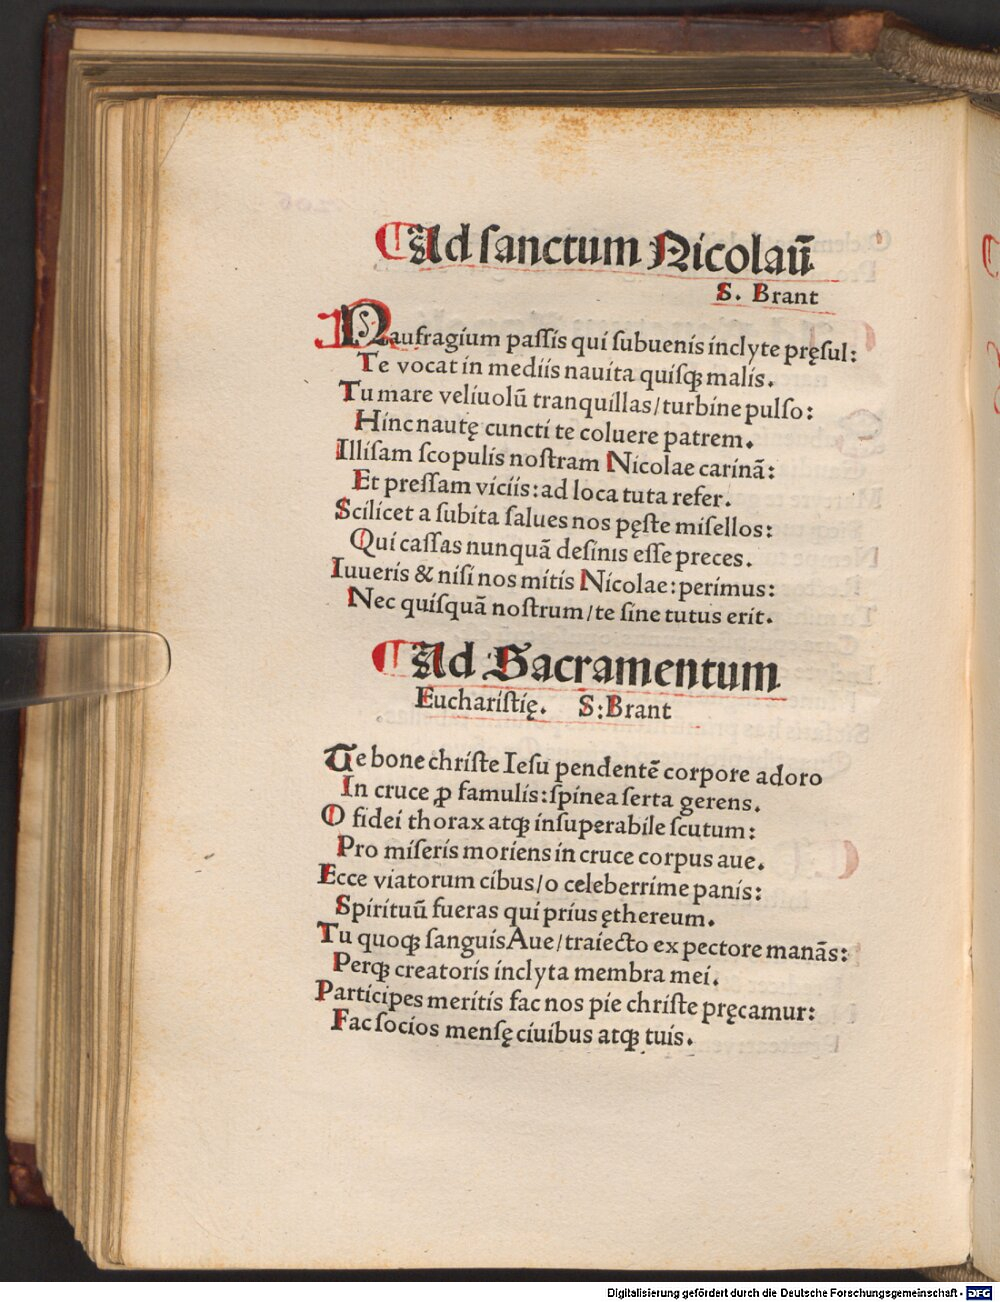 Ad ſanctum Nicolaū
S. Brant
Naufragium paſſis qui ſubuenis inclyte pręſul:
Te vocat in mediis nauita quiſqꝫ malis.
Tu mare veliuolū tranquillas/turbine pulſo:
Hinc nautę cuncti te coluere patrem.
Illiſam ſcopulis noſtram Nicolae carinā:
Et preſſam viciis: ad loca tuta refer.
Scilicet a ſubita ſalues nos pęſte miſellos:
Qui caſſas nunquā deſinis eſſe preces.
Iuueris & niſi nos mitis Nicolae: perimus:
Nec quiſquā noſtrum/te ſine tutus erit.
Ad Sacramentum
Euchariſtię. S: Brant
Te bone chriſte Ieſu pendentē corpore adoro
In cruce ꝓ famulis: ſpinea ſerta gerens.
O fidei thorax atqꝫ inſuperabile ſcutum:
Pro miſeris moriens in cruce corpus aue.
Ecce viatorum cibus/o celeberrime panis:
Spirituū fueras qui prius ętherum.
Tu quoqꝫ ſanguis Aue/traiecto ex pectore manās:
Perqꝫ creatoris inclyta membra mei.
Participes meritis fac nos pie chriſte pręcamur:
Fac ſocios menſę ciuibus atqꝫ tuis.
Digitalisierung gefördert durch die Deutsche Forschungsgemeinschaft - DFG